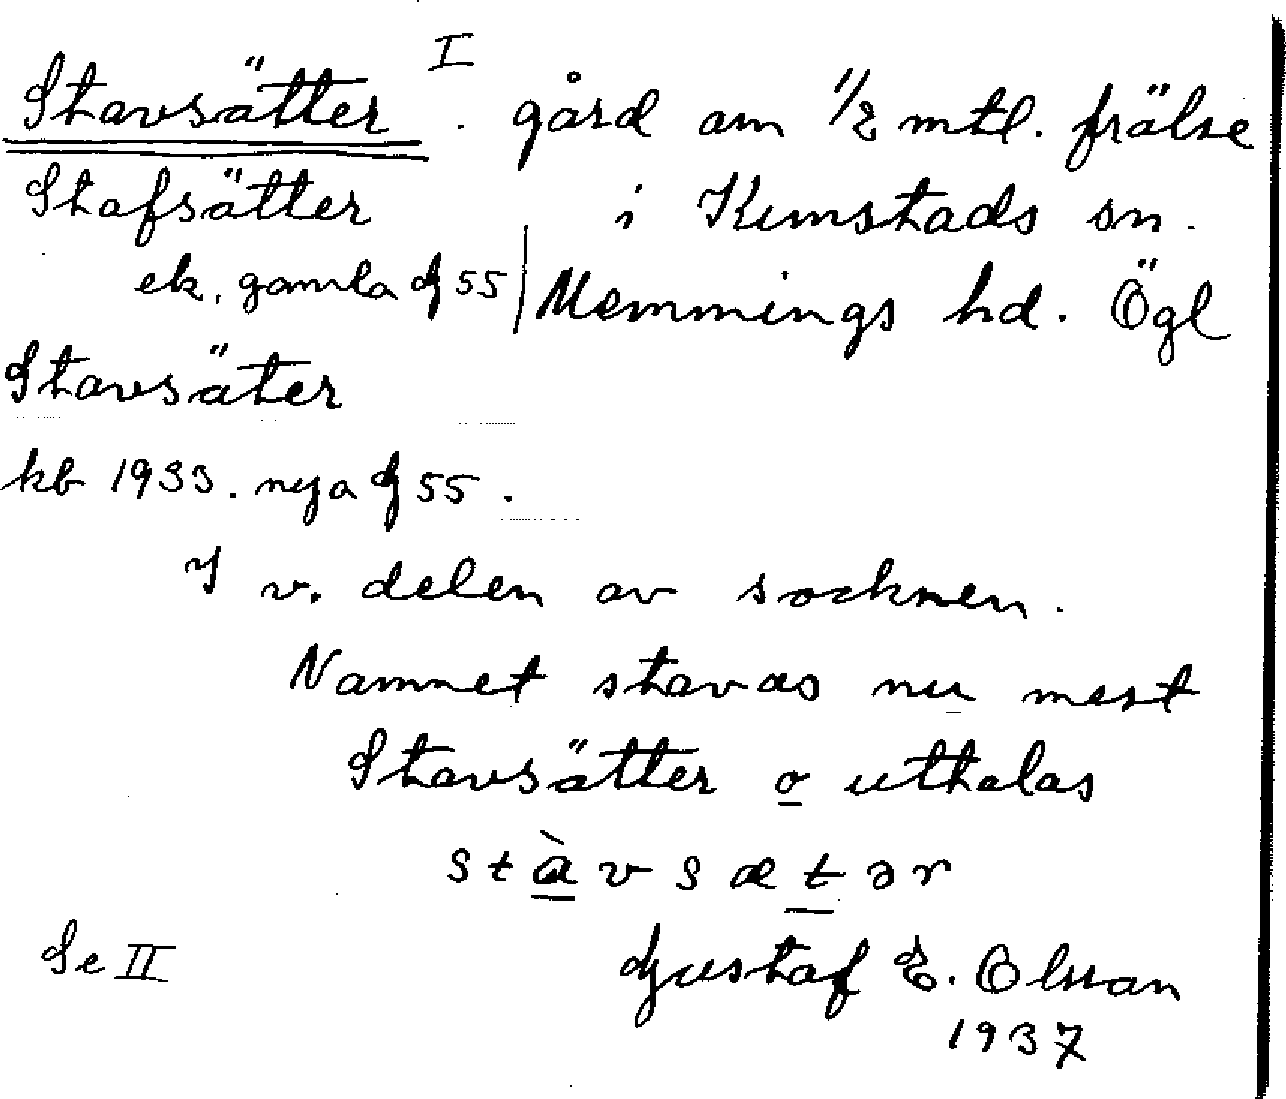 Stavsätter I. gård om 1/2 mtl. frälse
Stafsätter i Kimstads sn.
ek. gamla G 55 | Memmings hd. Ögl
Stavsäter
kb 1933. nya G 55.
I v. delen av socknen.
Namnet stavas nu mest
Stavsätter o uttalas
stàvsætər
Se II Gustaf E. Olsson
1937